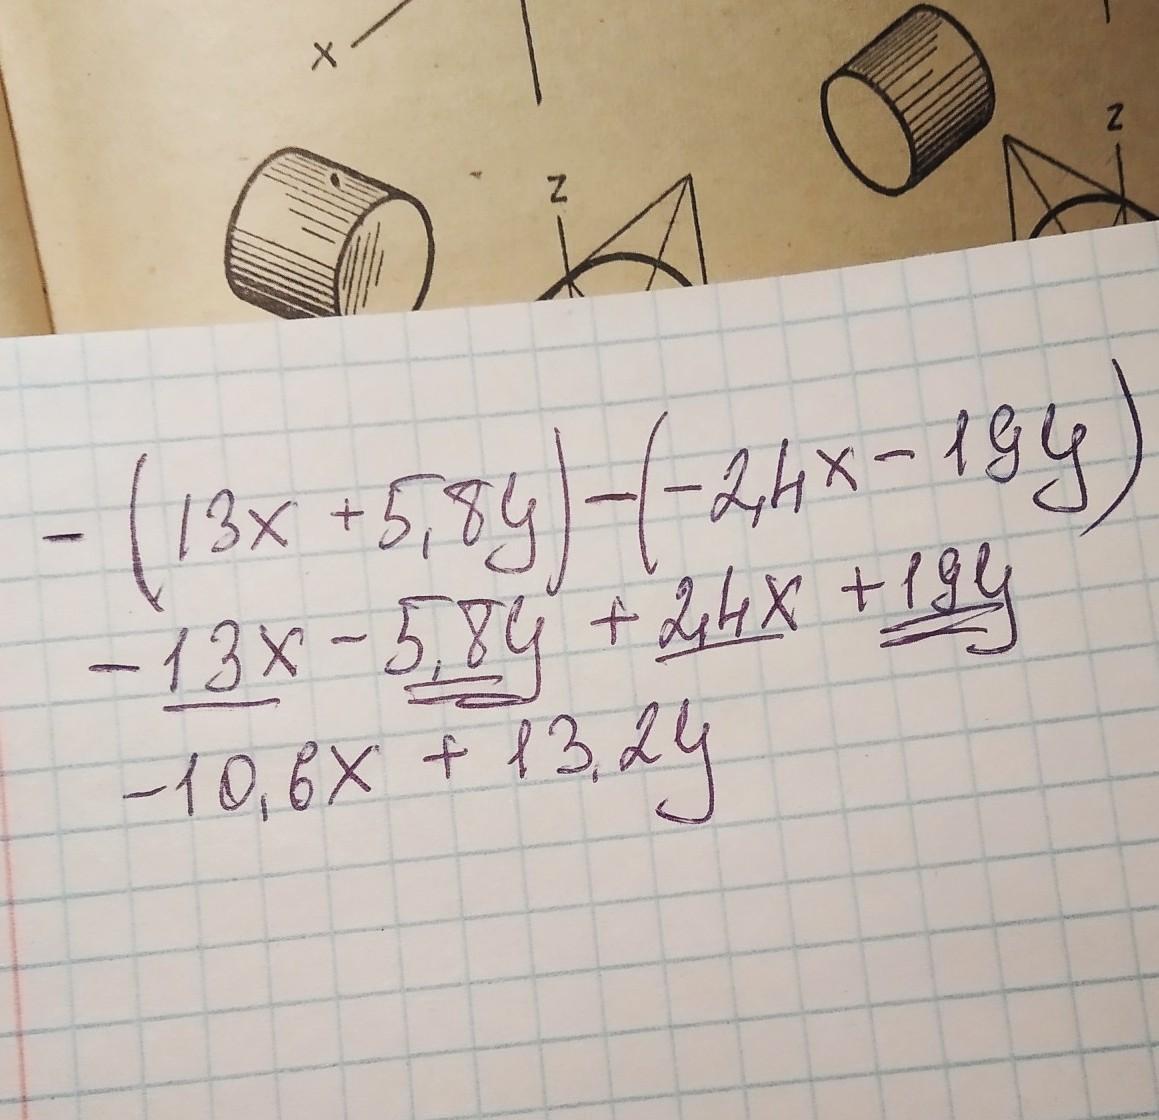 x
z
z
- (13x + 5,8y) - (-2,4x - 19y)
-13x - 5,8y + 2,4x + 19y
-10,6x + 13,2y